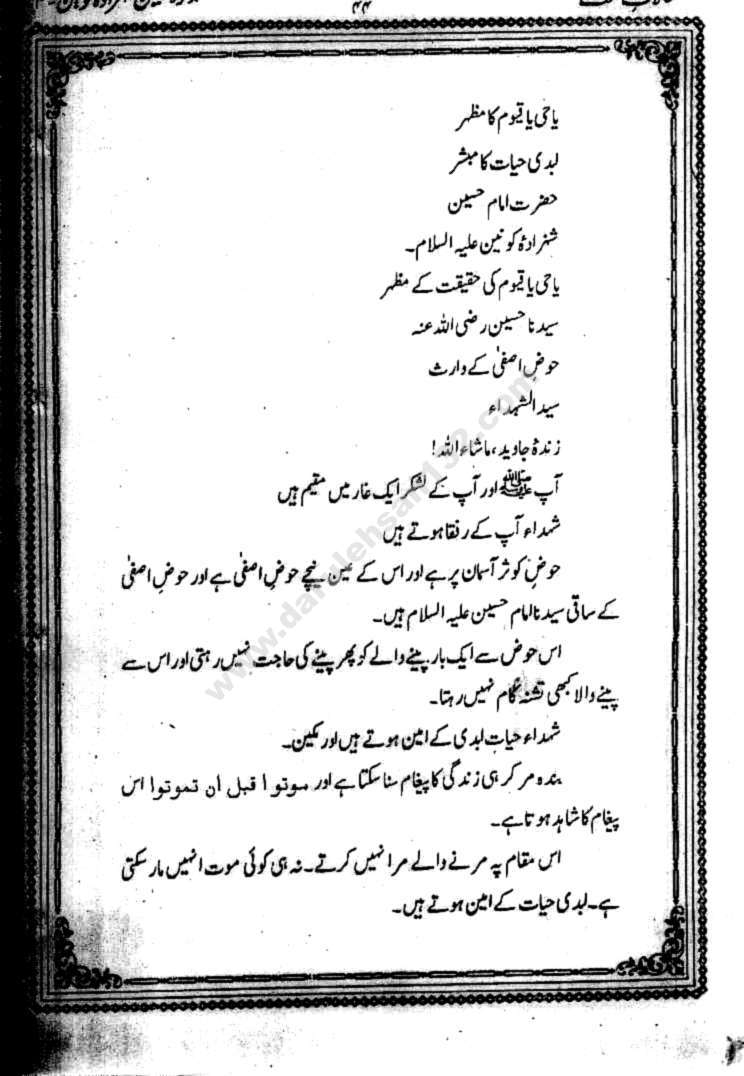 ۴۴
یا حی یا قیوم کا مظہر
ابدی حیات کا مبشر
حضرت امام حسین
شہزادۂ کونین علیہ السلام۔
یا حی یا قیوم کی حقیقت کے مظہر
سیدنا حسین رضی اللہ عنہ
حوضِ اصفیٰ کے وارث
سید الشہداء
زندۂ جاوید، ماشاء اللہ!
آپ ﷺ اور آپ کے لشکر ایک غار میں مقیم ہیں
شہداء آپ کے رفقا ہوتے ہیں
حوضِ کوثر آسمان پر ہے اور اس کے عین نیچے حوضِ اصفیٰ ہے اور حوضِ اصفیٰ
کے ساقی سیدنا امام حسین علیہ السلام ہیں۔
اس حوض سے ایک بار پینے والے کو پھر پینے کی حاجت نہیں رہتی اور اس سے
پینے والا کبھی تشنہ کام نہیں رہتا۔
شہداء حیاتِ ابدی کے امین ہوتے ہیں اور مکین۔
بندہ مر کر ہی زندگی کا پیغام سنا سکتا ہے اور موتوا قبل ان تموتوا اس
پیغام کا شاہد ہوتا ہے۔
اس مقام پہ مرنے والے مرا نہیں کرتے۔ نہ ہی کوئی موت انہیں مار سکتی
ہے۔ ابدی حیات کے امین ہوتے ہیں۔